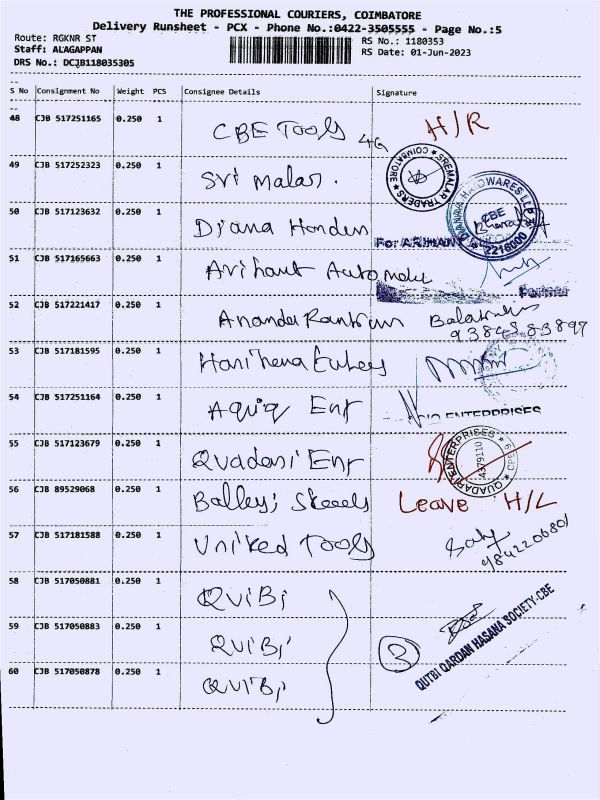 THE PROFESSIONAL COURIERS, COIMBATORE
Delivery Runsheet - PCX - Phone No.:0422-3505555 - Page No.:5
Route: RGKNR ST
RS No.: 1180353
Staff: ALAGAPPAN
RS Date: 01-Jun-2023
DRS No.: DCJB118035305
S No Consignment No Weight PCS Consignee Details Signature
48 CJB 517251165 0.250 1 CBE Tools H/R
49 CJB 517252323 0.250 1 Sri Malar. SREMALAR TRADERS ★ COIMBATORE ★
50 CJB 517123632 0.250 1 Diana HARDWARES LLP CBE 2216000
For ARIHANT
51 CJB 517165663 0.250 1 Arihant
Partner
52 CJB 517221417 0.250 1
53 CJB 517181595 0.250 1
54 CJB 517251164 0.250 1 Aqiq Ent ENTERPRISES
55 CJB 517123679 0.250 1 Quadari Ent QUADARI ENTERPRISES ★ 4379110
56 CJB 89529068 0.250 1 Leave H/L
57 CJB 517181588 0.250 1 United Tools
58 CJB 517050881 0.250 1 QViBi
59 CJB 517050883 0.250 1 QViBi 3 QUTBI QARDAN HASANA SOCIETY-CBE
60 CJB 517050878 0.250 1 QViBi